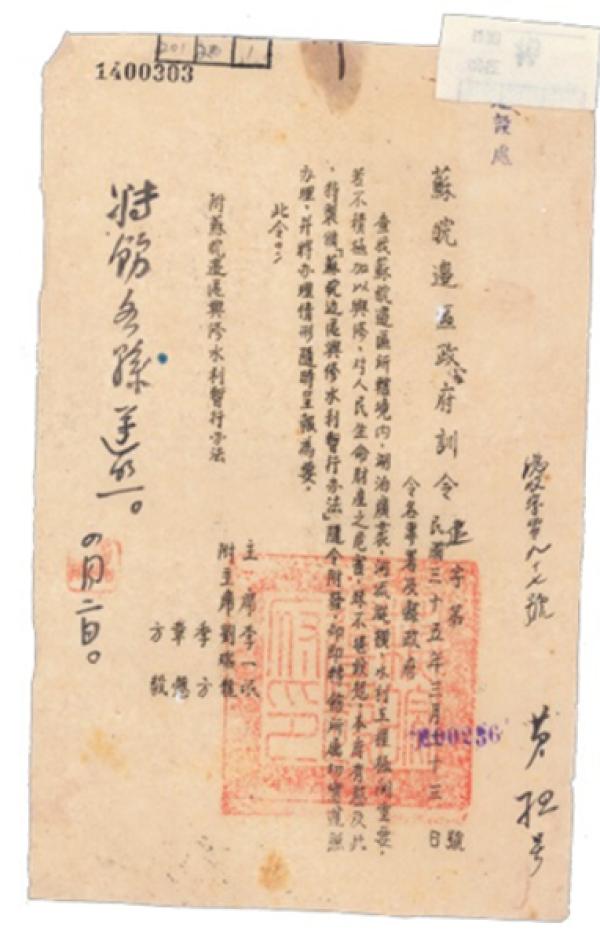 201
1
1400303
設處
蘇皖邊區政府訓令
建字第 號
民國三十五年三月 十三日
令各專署及縣政府
查我蘇皖邊區所轄境內,湖沼廣袤,河流縱橫,水利工程極關重要,
若不積極加以興修,对人民生命財產之危害,
本府有鑒及此
,特製復「蘇皖边區興修水利暫行办法」隨令附發,仰即轉飭所屬切實遵照
办理,并將办理情形隨時呈報為要。
此令
附蘇皖邊區興修水利暫行办法
主席李一氓
附主席劉瑞龍
季方
韋愨
方毅
轉飭各縣遵照。
四月二日。